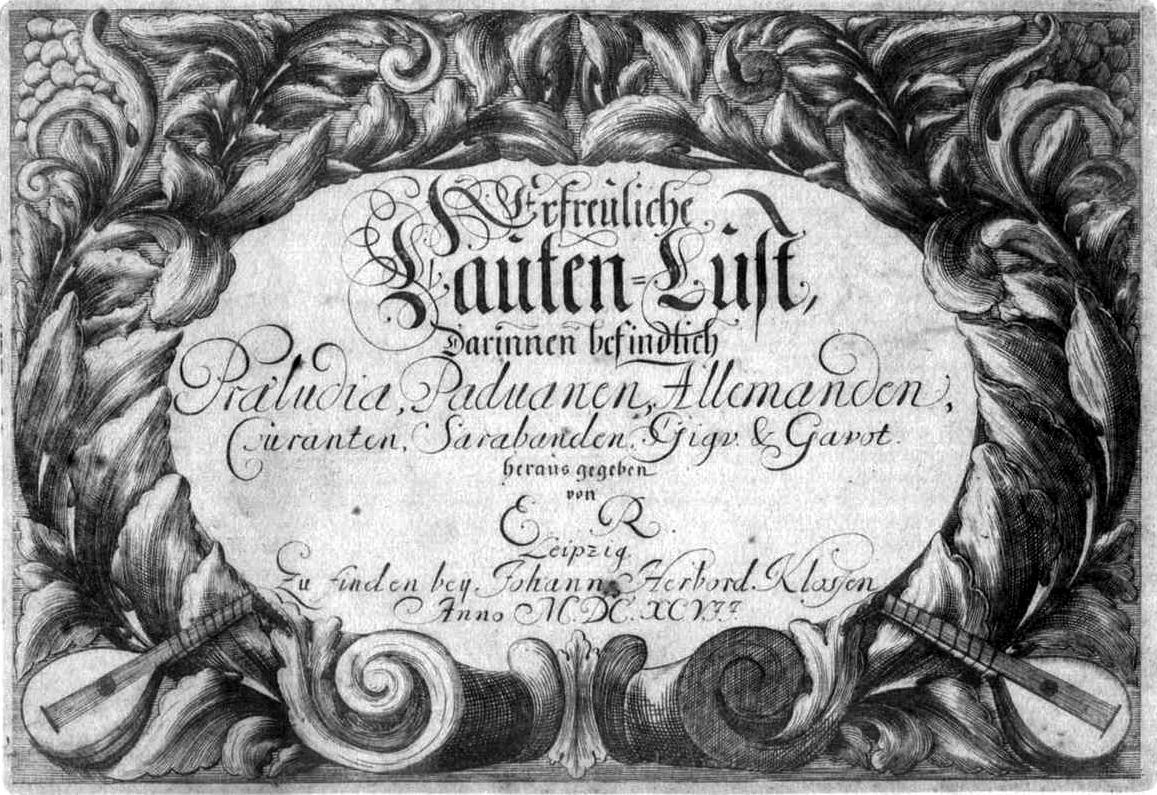 Erfreuliche
Lauten-Lust,
Darinnen befindlich
Præludia, Paduanen, Allemanden,
Couranten, Sarabanden, Gigv. & Gavot.
heraus gegeben
von
E R.
Leipzig.
Zu finden bey. Johann. Herbord. Klossen
Anno M.DC.XCVII